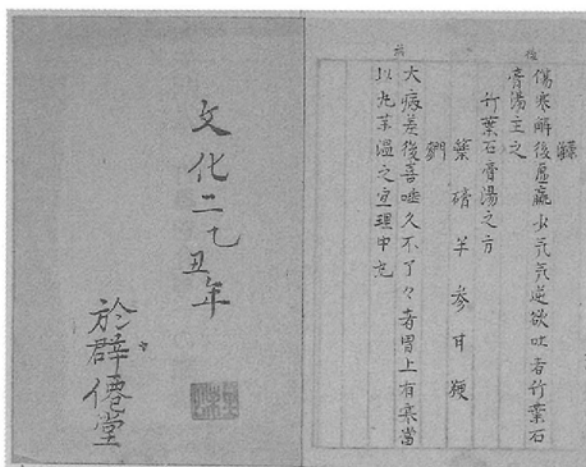 傷寒解後虛羸少气气逆欲吐者竹葉石
膏湯主之
竹葉石膏湯之方
参甘粳
大病差後喜唾久不了々者胃上有寒當
以丸薬温之宜理中丸
文化二乙丑年
於群僊堂